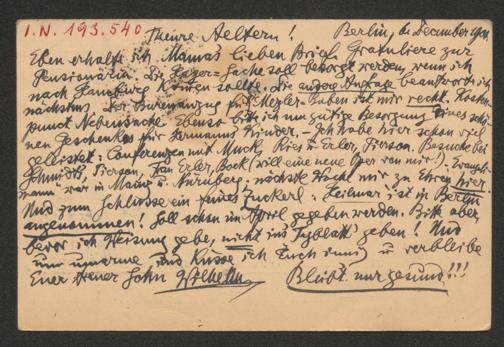 I.N. 193.540
Theure Aeltern! Berlin, December
Eben erhalte ich Mama's lieben Brief. Gratuliere zur
Pensionärin. Die Sache soll besorgt werden, wenn ich
nach Hamburg kommen sollte. Die andere Anfrage beantworte ich
nächstens. Der für Buben ist mir recht. Kosten-
punct Nebensache. Ebenso bitte ich um gütige Besorgung eines schö-
nen Geschenkes für Hermanns Kinder. – Ich habe hier schon viel
geleistet: Conferenzen mit Muck, Ries & Erler, Pierson. Besuche bei
Schmidts, Pierson, Frau Erler, Bock (will eine neue Oper von mir!).
mann war in Mainz u. Nürnberg. nächste Woche mir zu Ehren hier
Und zum Schlusse ein Zuckerl: Heilmar ist in Berlin
angenommen! Soll schon im April gegeben werden. Bitte aber,
bevor ich Weisung gebe, nicht ins geben! Und
nun umarme und küsse ich Euch innig u. verbleibe
Euer treuer Sohn Wilhelm Bleibt nur gesund!!!